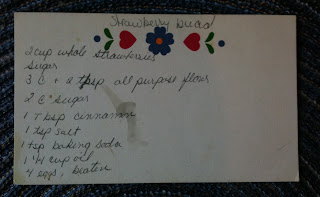 Strawberry Bread
2 cup whole strawberries
sugar
3 C + 2 tbsp all purpose flour
2 C sugar
1 Tbsp cinnamon
1 tsp salt
1 tsp baking soda
1 1/4 cup oil
4 eggs, beaten